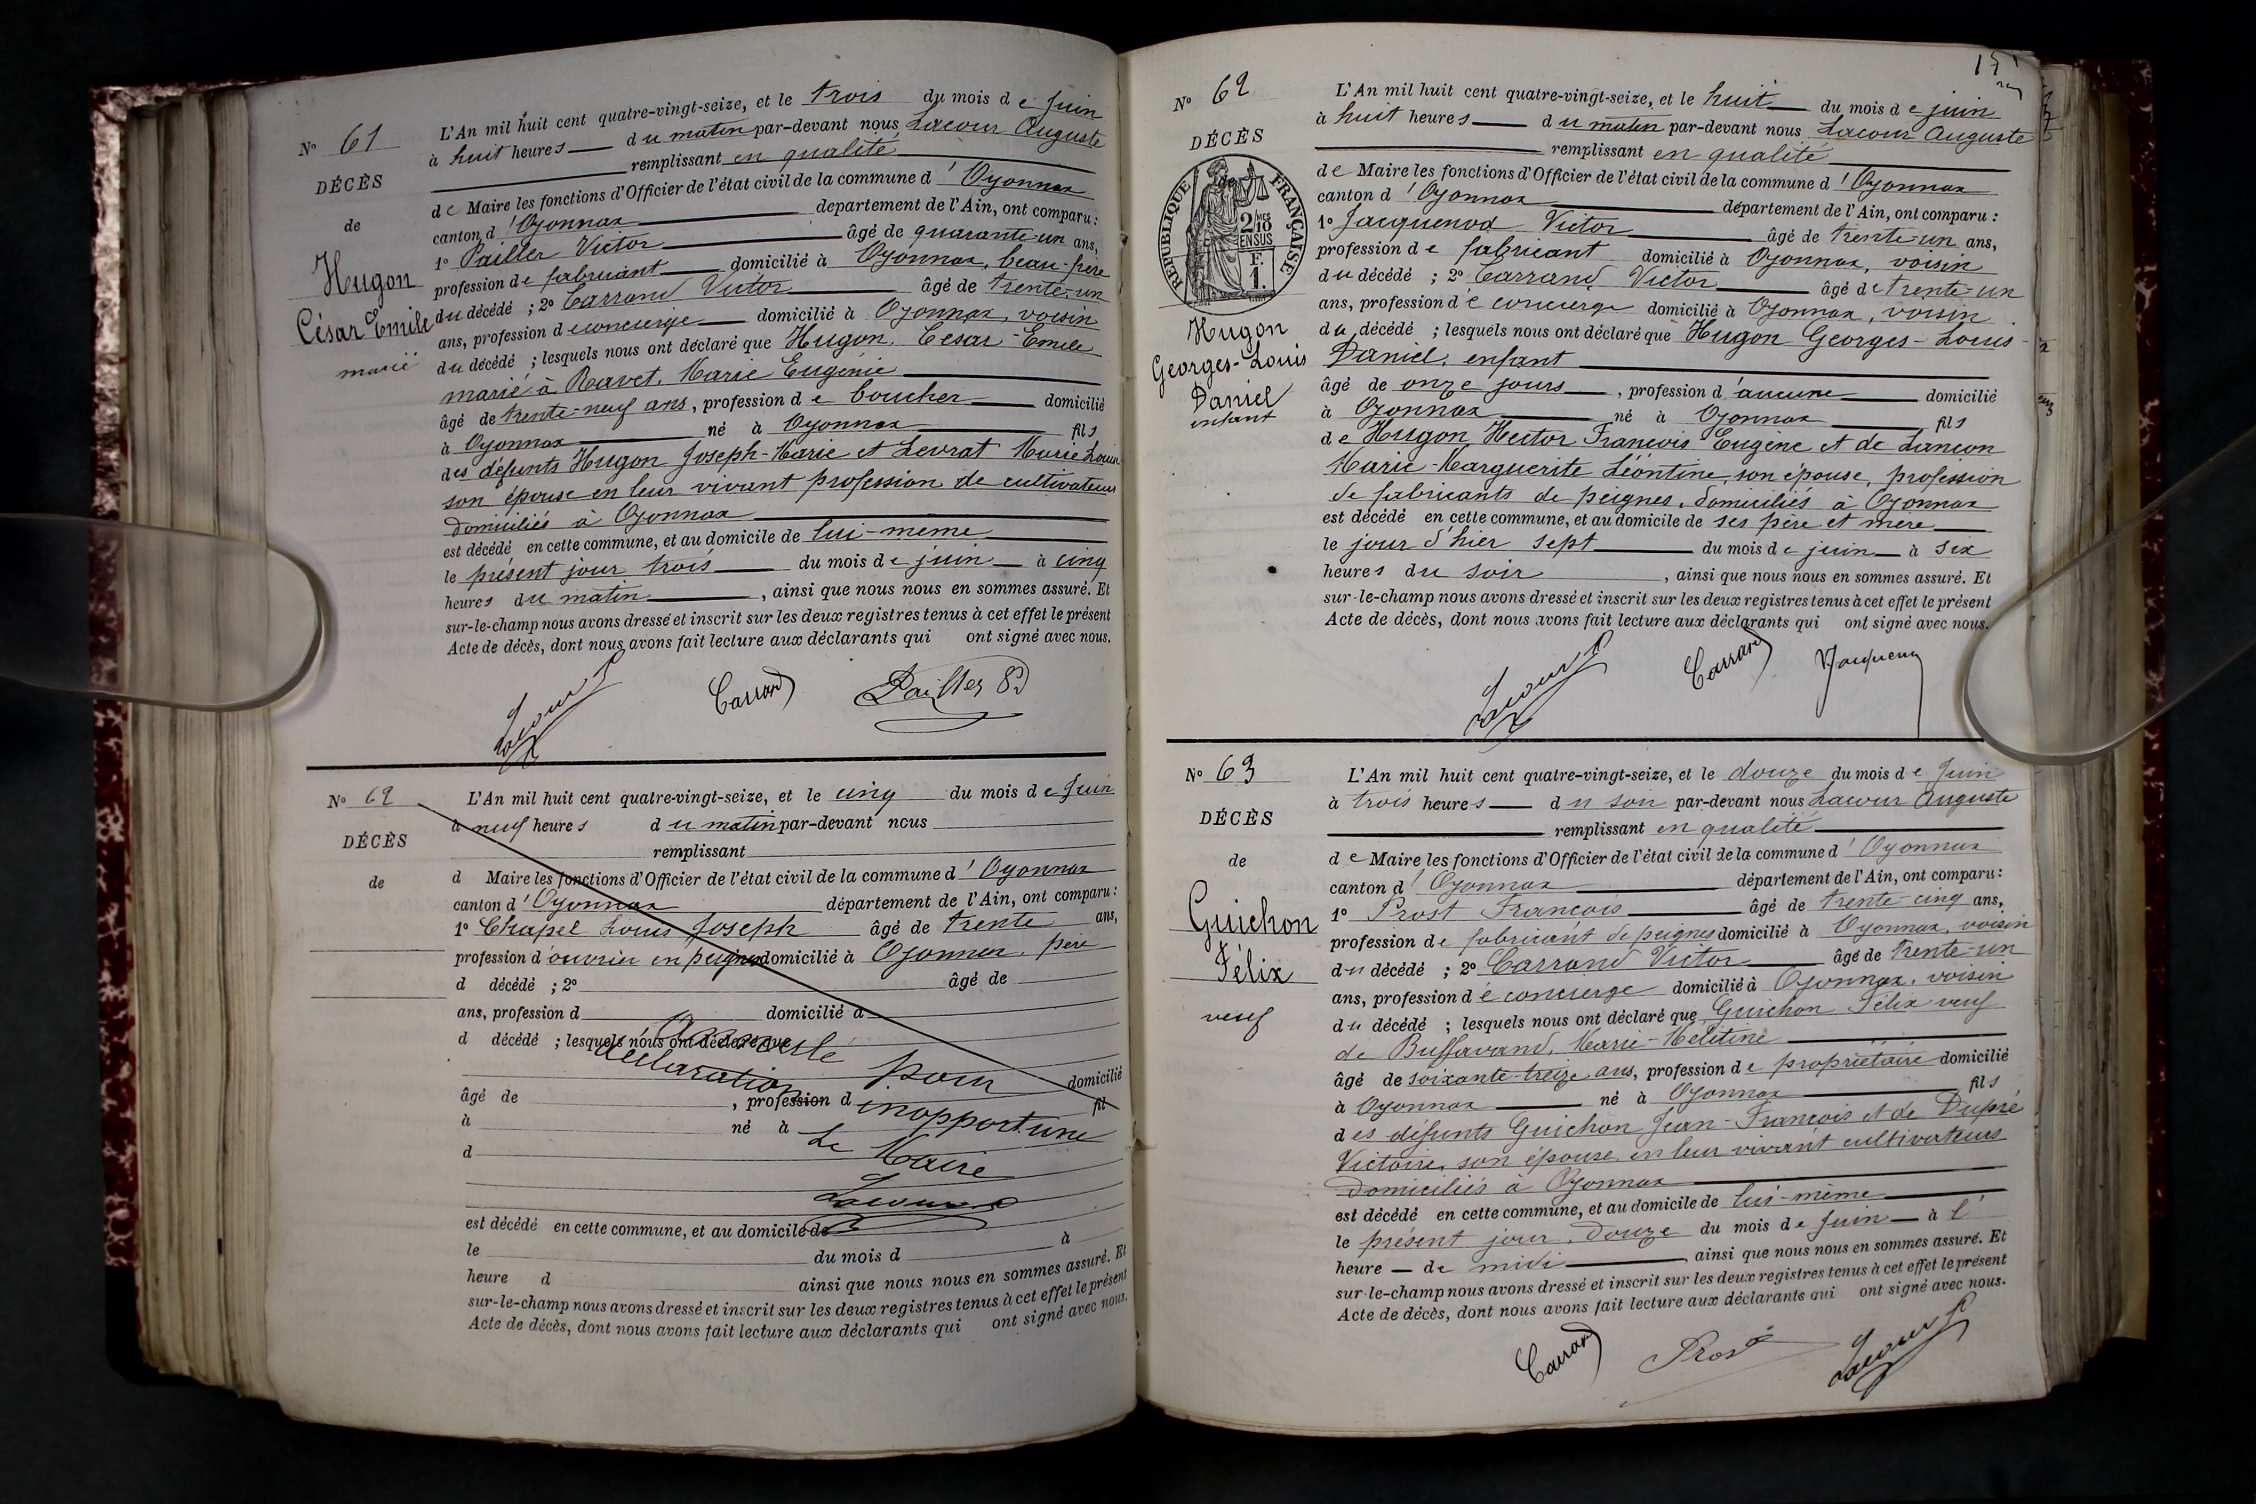 N° 61
DÉCÈS
de
Hugon
César Emile
marié
L'An mil huit cent quatre-vingt-seize, et le trois du mois de Juin
à huit heures du matin par-devant nous Lacour Auguste
remplissant en qualité
de Maire les fonctions d'Officier de l'état civil de la commune d'Oyonnax
canton d'Oyonnax département de l'Ain, ont comparu :
1° Pailler Victor âgé de quarante-un ans,
profession de fabricant domicilié à Oyonnax, beau-père
du décédé ; 2° Carrand Victor âgé de trente-un
ans, profession de concierge domicilié à Oyonnax, voisin
du décédé ; lesquels nous ont déclaré que Hugon, César-Emile
marié à Ravet, Marie Eugénie
âgé de trente-neuf ans, profession de boucher domicilié
à Oyonnax né à Oyonnax fils
des défunts Hugon Joseph-Marie et Levrat Marie Louise
son épouse en leur vivant profession de cultivateurs
domiciliés à Oyonnax
est décédé en cette commune, et au domicile de lui-même
le présent jour trois du mois de juin à cinq
heures du matin, ainsi que nous nous en sommes assuré. Et
sur-le-champ nous avons dressé et inscrit sur les deux registres tenus à cet effet le présent
Acte de décès, dont nous avons fait lecture aux déclarants qui ont signé avec nous.
Lacour Carrand Pailler
N° 62
DÉCÈS
de
L'An mil huit cent quatre-vingt-seize, et le cinq du mois de Juin
à neuf heures du matin par-devant nous
remplissant
d Maire les fonctions d'Officier de l'état civil de la commune d'Oyonnax
canton d'Oyonnax département de l'Ain, ont comparu :
1° Chapel Louis Joseph âgé de trente ans,
profession d'ouvrier en peignes domicilié à Oyonnax, père
d décédé ; 2° âgé de
ans, profession d domicilié à
d décédé ; lesquels nous ont déclaré que
Annulé pour
déclaration domicilié
âgé de , profession d inopportune fil
à né à Le Maire
d
Lacour
est décédé en cette commune, et au domicile de
le du mois d à
heure d ainsi que nous nous en sommes assuré. Et
sur-le-champ nous avons dressé et inscrit sur les deux registres tenus à cet effet le présent
Acte de décès, dont nous avons fait lecture aux déclarants qui ont signé avec nous.
N° 62
DÉCÈS
de
RÉPUBLIQUE FRANÇAISE
2/10 MES
EN SUS
F.
1.
Hugon
Georges-Louis
Daniel
enfant
L'An mil huit cent quatre-vingt-seize, et le huit du mois de juin
à huit heures du matin par-devant nous Lacour Auguste
remplissant en qualité
de Maire les fonctions d'Officier de l'état civil de la commune d'Oyonnax
canton d'Oyonnax département de l'Ain, ont comparu :
1° Jacquenod Victor âgé de trente-un ans,
profession de fabricant domicilié à Oyonnax, voisin
du décédé ; 2° Carrand Victor âgé de trente-un
ans, profession de concierge domicilié à Oyonnax, voisin
du décédé ; lesquels nous ont déclaré que Hugon Georges-Louis-
Daniel, enfant
âgé de onze jours, profession d'aucune domicilié
à Oyonnax né à Oyonnax fils
de Hugon, Hector François Eugène et de Lançon
Marie-Marguerite Léontine, son épouse, profession
de fabricants de peignes, domiciliés à Oyonnax
est décédé en cette commune, et au domicile de ses père et mère
le jour d'hier sept du mois de juin à six
heures du soir, ainsi que nous nous en sommes assuré. Et
sur-le-champ nous avons dressé et inscrit sur les deux registres tenus à cet effet le présent
Acte de décès, dont nous avons fait lecture aux déclarants qui ont signé avec nous.
Lacour Carrand
N° 63
DÉCÈS
de
Guichon
Félix
veuf
L'An mil huit cent quatre-vingt-seize, et le douze du mois de Juin
à trois heures du soir par-devant nous Lacour Auguste
remplissant en qualité
de Maire les fonctions d'Officier de l'état civil de la commune d'Oyonnax
canton d'Oyonnax département de l'Ain, ont comparu :
1° Prost François âgé de trente-cinq ans,
profession de fabricant de peignes domicilié à Oyonnax, voisin
du décédé ; 2° Carrand Victor âgé de trente-un
ans, profession de concierge domicilié à Oyonnax, voisin
du décédé ; lesquels nous ont déclaré que Guichon Félix veuf
de Buffavand, Marie-Melitine
âgé de soixante-treize ans, profession de propriétaire domicilié
à Oyonnax né à Oyonnax fils
des défunts Guichon Jean-François et de Dupré
Victoire, son épouse en leur vivant cultivateurs
domiciliés à Oyonnax
est décédé en cette commune, et au domicile de lui-même
le présent jour, douze du mois de Juin à l'
heure de midi ainsi que nous nous en sommes assuré. Et
sur-le-champ nous avons dressé et inscrit sur les deux registres tenus à cet effet le présent
Acte de décès, dont nous avons fait lecture aux déclarants qui ont signé avec nous.
Carrand Prost Lacour